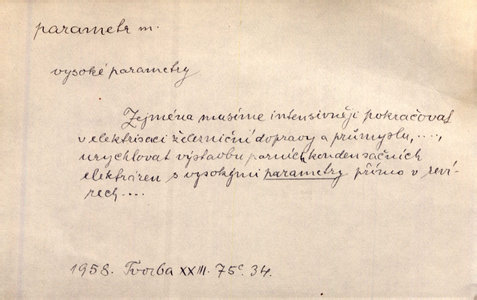 parametr m.
vysoké parametry
Zejména musíme intensivněji pokračovat
v elektrisaci železniční dopravy a průmyslu, ....,
urychlovat výstavbu parních kondensačních
elektráren s vysokými parametry přímo v reví-
rech ....
1958. Tvorba XXIII. 75c. 34.